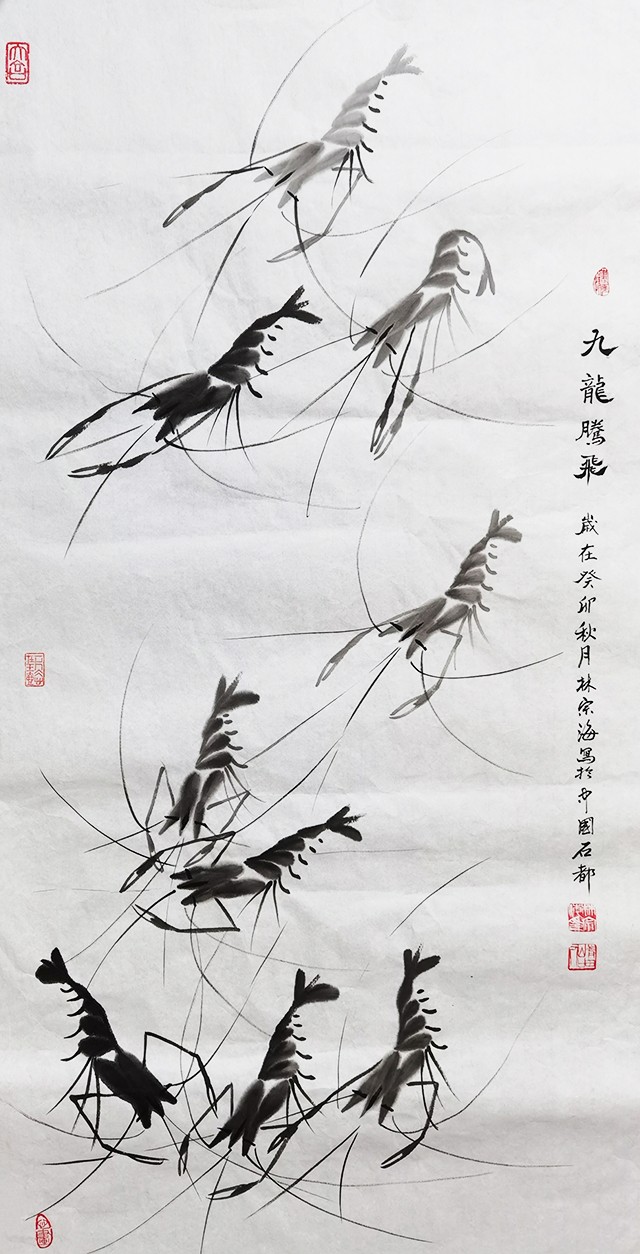 九龍騰飛
歲在癸卯秋月林宗海寫於中國石都